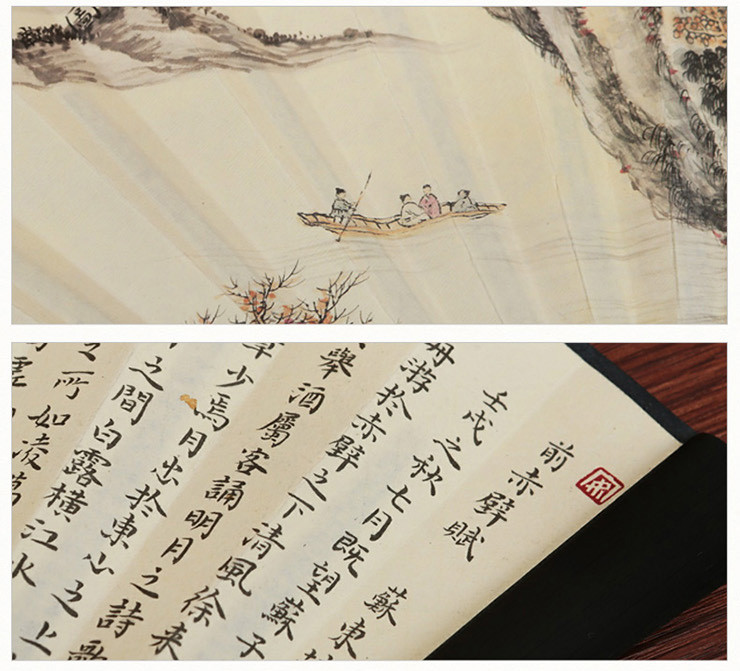 前赤壁賦 蘇東
壬戌之秋七月既望蘇子
舟游於赤壁之下清風徐来
舉酒屬客誦明月之詩歌
章少焉月出於東山之上
之間白露橫江水
之所如凌萬